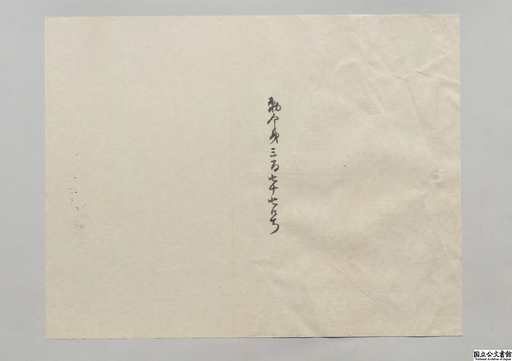 勅令第三百七十七号
国立公文書館
National Archives of Japan